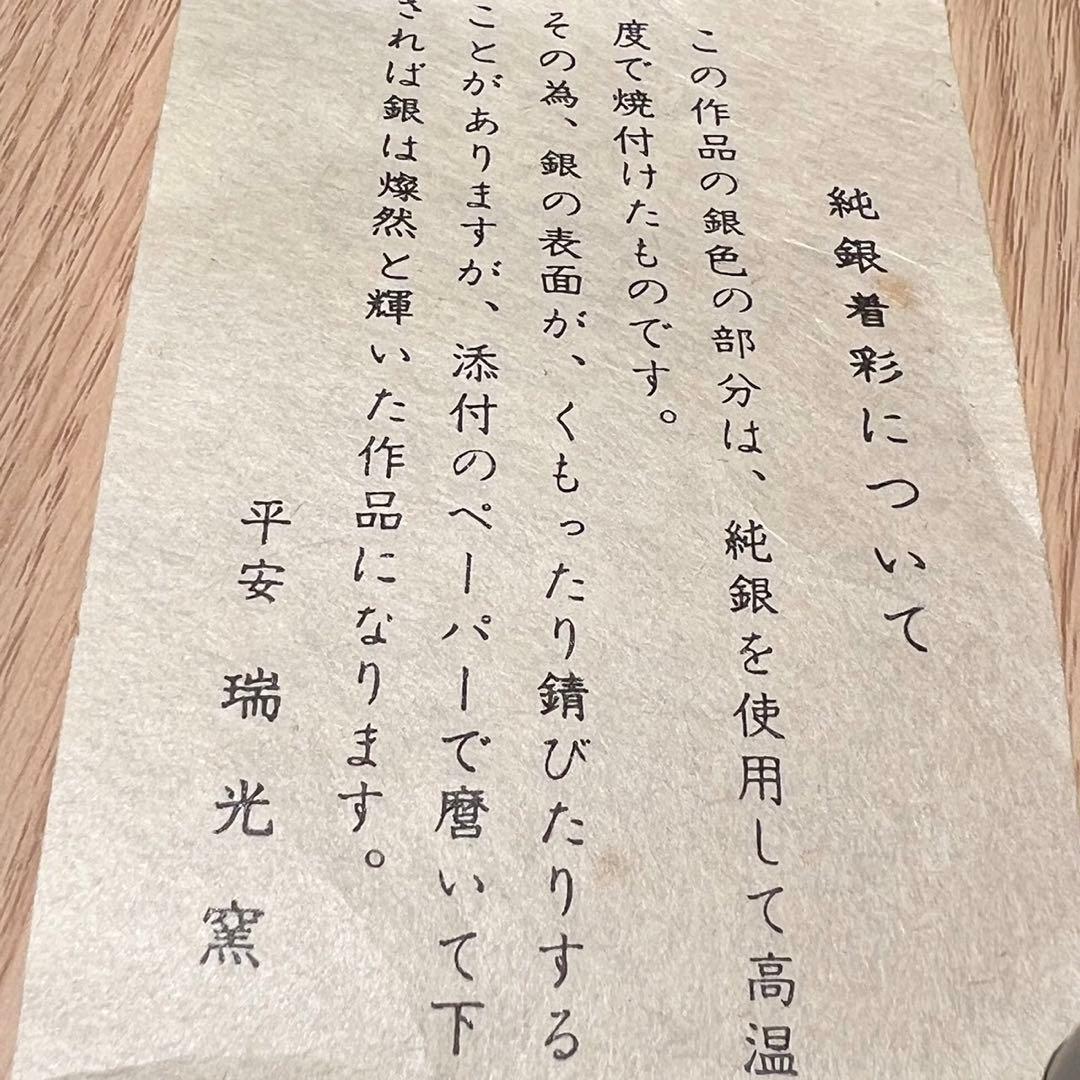 純銀着彩について
この作品の銀色の部分は、純銀を使用して高温
度で焼付けたものです。
その為、銀の表面が、くもったり錆びたりする
ことがありますが、添付のペーパーで磨いて下
されば銀は燦然と輝いた作品になります。
平安 瑞光窯